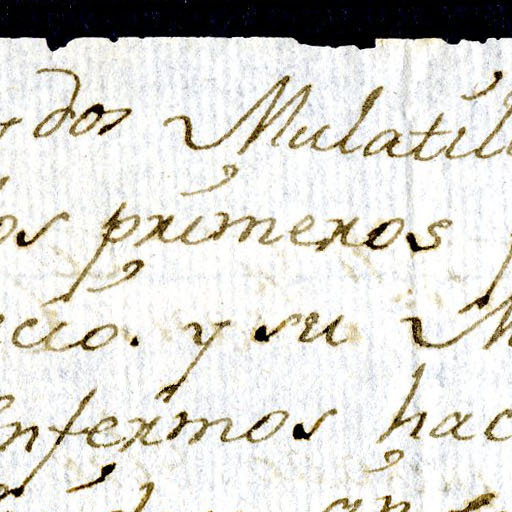 dos Mulatil
os primeros
ció. y su M
Enfermos hac